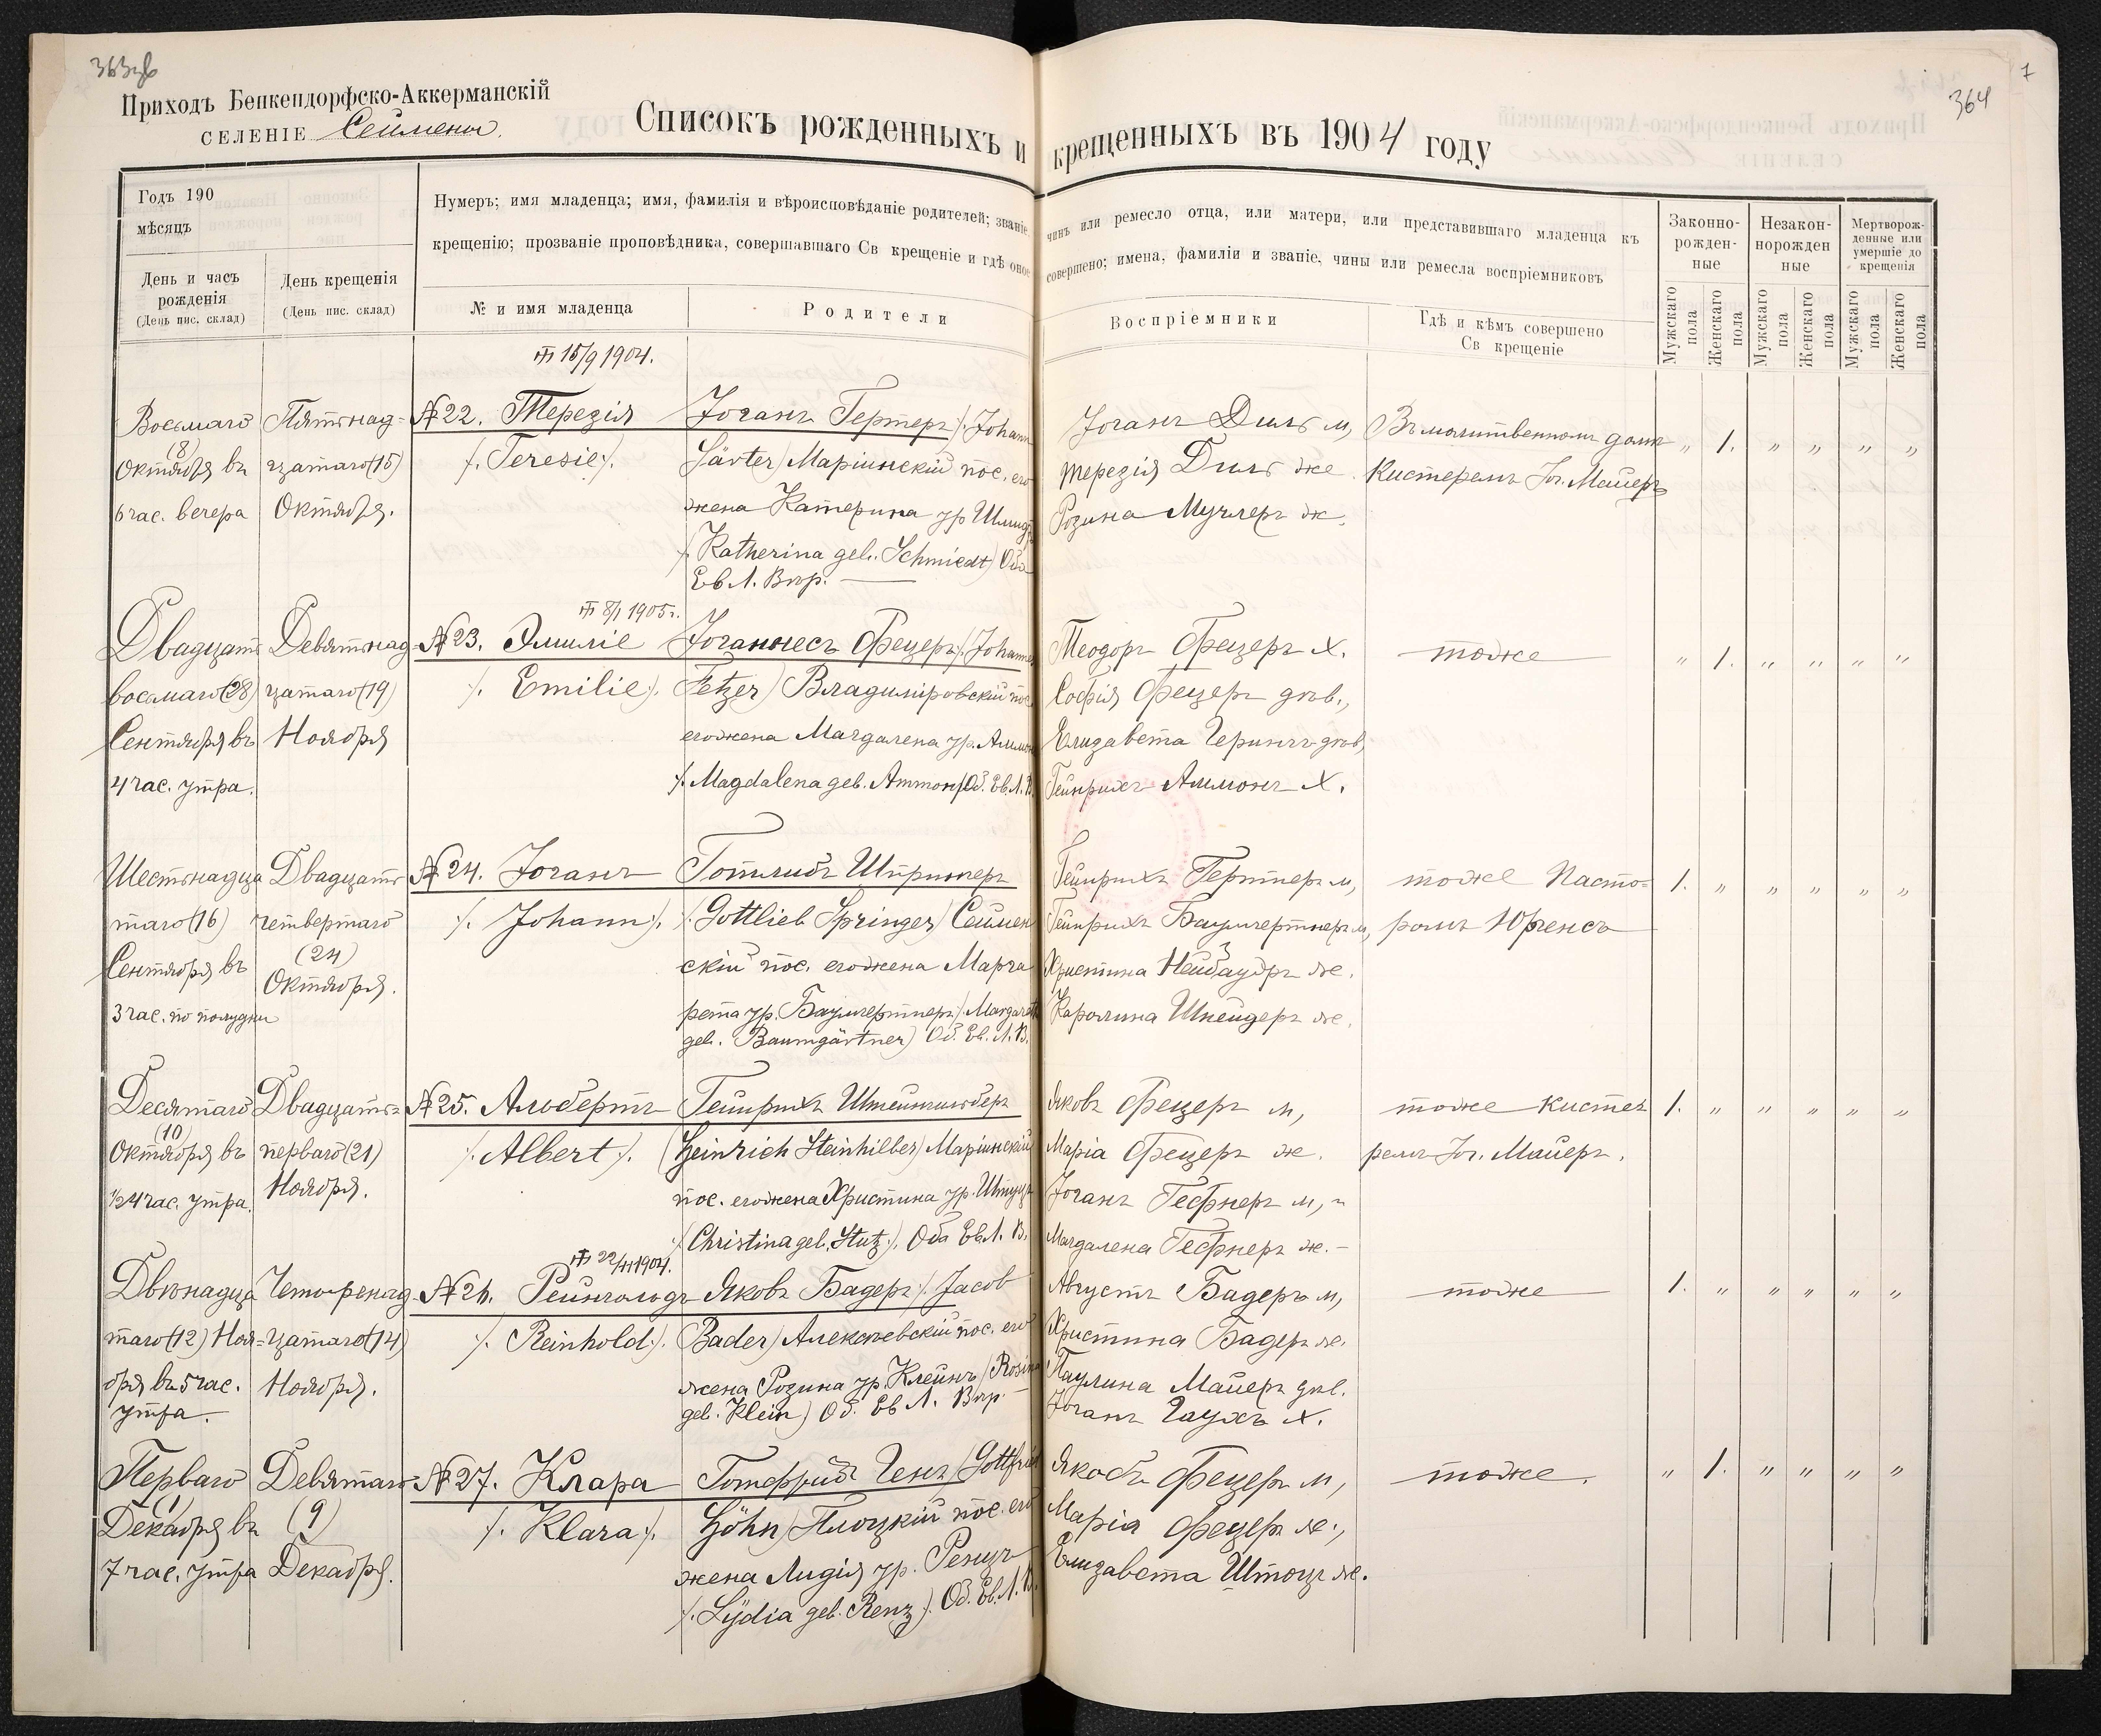 364
7
Приходъ Бенкендорфско-Аккерманскій
СЕЛЕНІЕ Сеймены
Списокъ рожденныхъ и крещенныхъ въ 1904 году
Годъ 190
мѣсяцъ
День и часъ
рожденія
(День пис. склад)
День крещенія
(День пис. склад)
Нумеръ; имя младенца; имя, фамилія и вѣроисповѣданіе родителей; званіе, чинъ или ремесло отца, или матери, или представившаго младенца къ
крещенію; прозваніе проповѣдника, совершавшаго Св крещеніе и гдѣ оное совершено; имена, фамиліи и званіе, чины или ремесла воспріемниковъ
№ и имя младенца
Родители
Воспріемники
Гдѣ и кѣмъ совершено
Св крещеніе
Законно-
рожден-
ные
Незакон-
норожден
ные
Мертворож-
денные или
умершіе до
крещенія
Мужскаго пола
Женскаго пола
Мужскаго пола
Женскаго пола
Мужскаго пола
Женскаго пола
Восьмаго
(8)
Октября въ
6 час. вечера
Пятнад-
цатаго (15)
Октября.
15/9 1904.
№ 22. Терезія
/. Teresie ./.
Іоганъ Гертеръ /. Johann
Härter) Маріинскій пос. его
жена Катерина ур Шмидтъ
/. Katherina geb. Schmiedt) Оба
Ев Л. Впр.
Іоганъ Диль м,
Терезія Диль же
Розина Мучлеръ ж.
Въ молитвенномъ домѣ
Кистеромъ Іог. Майеръ
„ 1. „ „ „ „
Двадцать
восьмаго (28)
Сентября въ
4 час. утра.
Девятнад-
цатаго (19)
Ноября
8/1 1905 г.
№ 23. Эмиліе
/. Emilie ./.
Іоганнесъ Фецеръ /. Johannes
Fetzer) Владиміровскій пос.
его жена Магдалена ур. Аммонъ
/. Magdalena geb. Ammon) Об. Ев. Л. В.
Теодоръ Фецеръ Х.
Софія Фецеръ дѣв.,
Елизавета Герингъ дѣв,
Гейнрихъ Аммонъ Х.
тоже
„ 1. „ „ „ „
Шестнадца
таго (16)
Сентября въ
3 час. по полудни
Двадцать
четвертаго
(24)
Октября.
№ 24. Іоганъ
/. Johann ./.
Готлибъ Шпрингеръ
/. Gottlieb Springer) Саймен
скій пос. его жена Марга
рета ур. Баумгертнеръ /. Margareth
geb. Baumgärtner) Об. Ев. Л. В.
Гейнрихъ Гертнеръ м,
Гейнрихъ Баумгертнеръ м,
Христина Нейбауэръ же.
Каролина Шнейдеръ же.
тоже Пасто-
ромъ Юргенсъ
1. „ „ „ „ „
Десятаго
(10)
Октября въ
½4 час. утра.
Двадцать-
перваго (21)
Ноября.
№ 25. Альбертъ
/. Albert ./.
Гейнрихъ Штейнгильберъ
(Heinrich Steinhilber) Маріинскій
пос. его жена Христина ур. Штуцъ
/. Christina geb. Stutz ./. Оба Ев Л. В.
Яковъ Фецеръ м,
Марія Фецеръ же.
Іоганъ Гефнеръ м, „
Магдалена Гефнеръ ж.
тоже кисте-
ромъ Іог. Майеръ.
1. „ „ „ „ „
Двѣнадца
таго (12) Ноя-
бря въ 5 час.
утра.
Четырнад-
цатаго (14)
Ноября.
22/11 1904.
№ 26. Рейнгольдъ
/. Reinhold ./.
Яковъ Бадеръ /. Jacob
Bader) Алексѣевскій пос. его
жена Розина ур. Клейнъ /. Rosina
geb. Klein) Об. Ев Л. Впр.
Августъ Бадеръ м,
Христина Бадеръ же.
Паулина Майеръ дѣв.
Іоганъ Гаухъ Х.
тоже
1. „ „ „ „ „
Перваго
(1)
Декабря въ
7 час. утра
Девятаго
(9)
Декабря.
№ 27. Клара
/. Klara ./.
Готфридъ Генъ /. Gottfried
Höhn) Плоцкій пос. его
жена Лидія ур. Ренцъ
/. Lÿdia geb. Renz ./. Об. Ев. Л. В.
Якобъ Фецеръ м,
Марія Фецеръ же.,
Елизавета Штоцъ же.
тоже.
„ 1. „ „ „ „